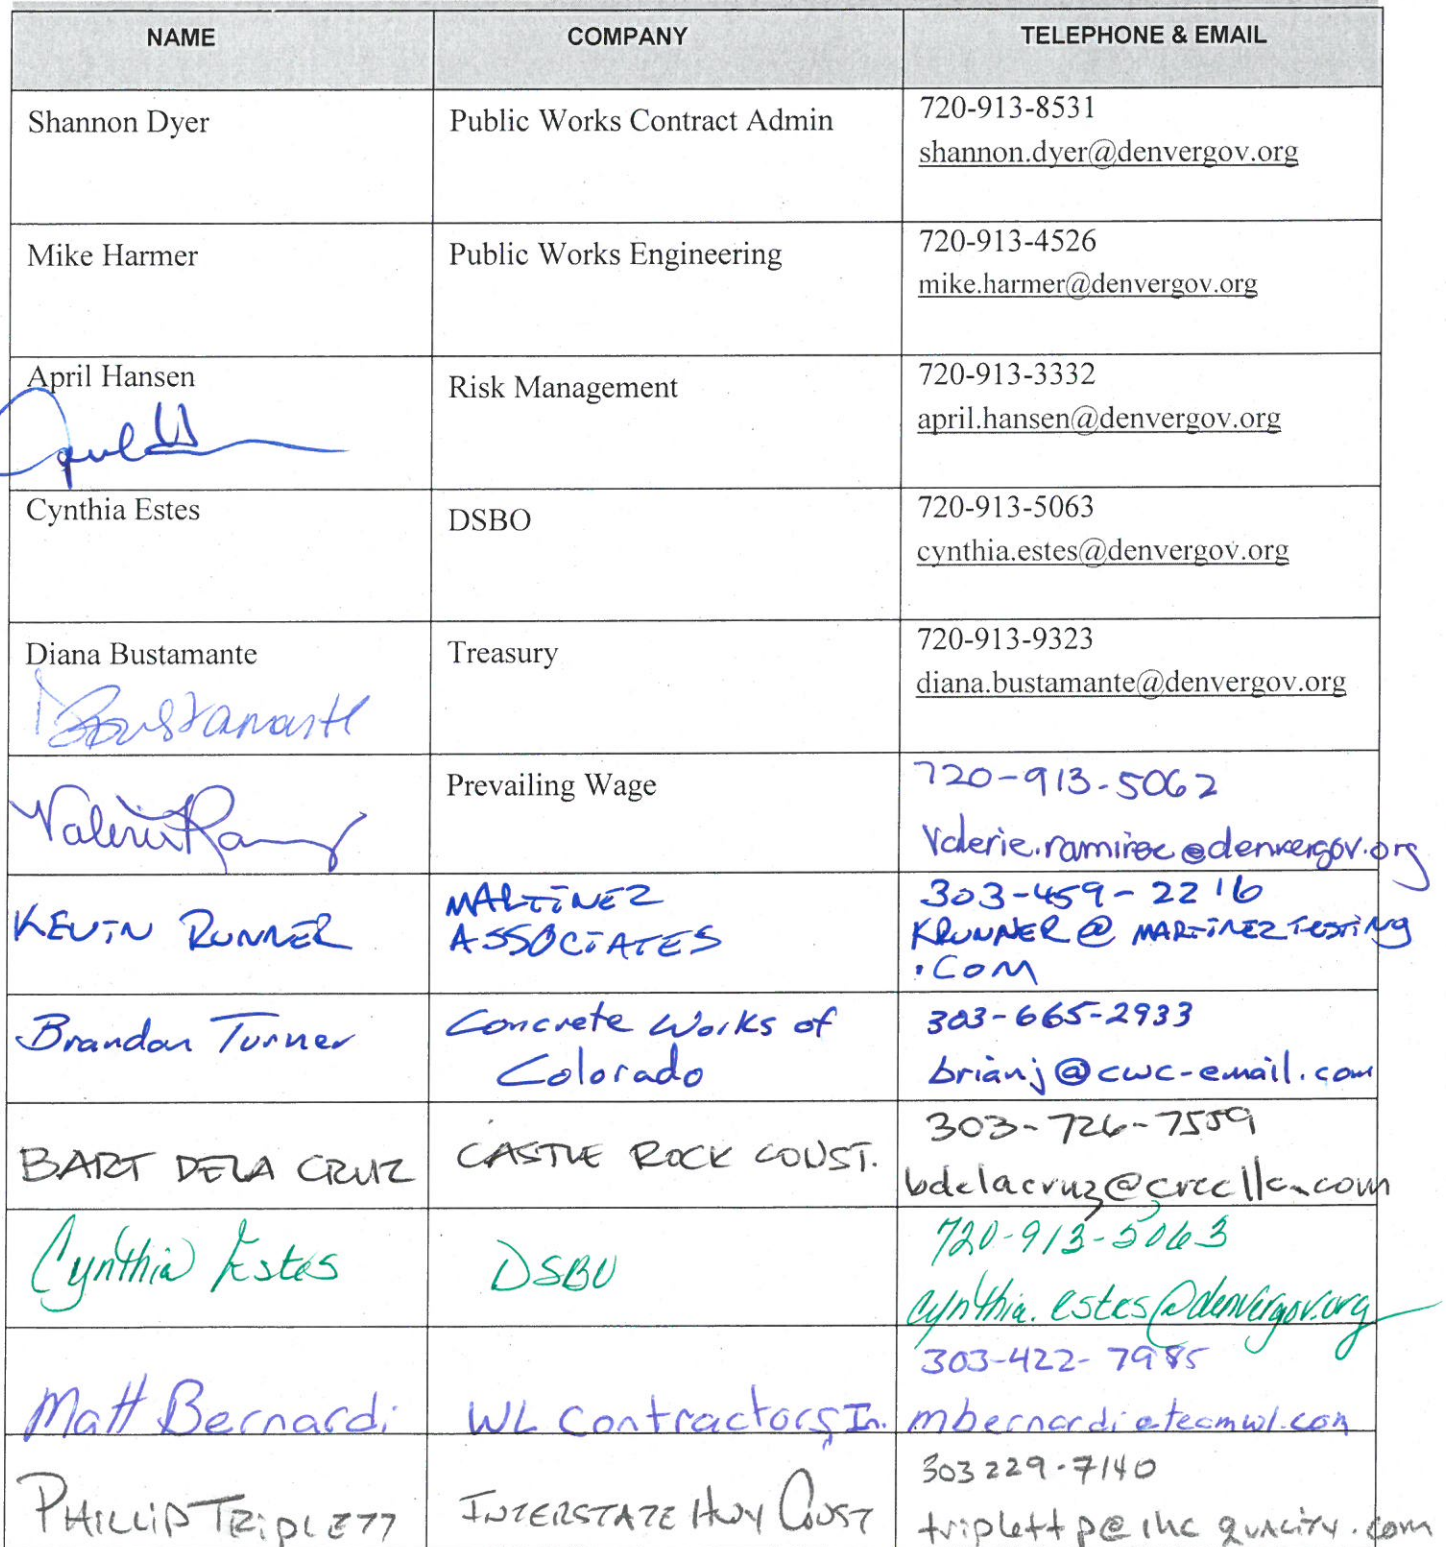 NAME COMPANY TELEPHONE & EMAIL
Shannon Dyer Public Works Contract Admin 720-913-8531
shannon.dyer@denvergov.org
Mike Harmer Public Works Engineering 720-913-4526
mike.harmer@denvergov.org
April Hansen Risk Management 720-913-3332
april.hansen@denvergov.org
Cynthia Estes DSBO 720-913-5063
cynthia.estes@denvergov.org
Diana Bustamante Treasury 720-913-9323
diana.bustamante@denvergov.org
DBustamante
Prevailing Wage 720-913-5062
Valerie valerie.ramirez@denvergov.org
KEVIN RUNNER MARTINEZ 303-459-2216
ASSOCIATES KRUNNER@MARTINEZTESTING
.COM
Brandon Turner Concrete Works of 303-665-2933
Colorado brianj@cwc-email.com
BART DELA CRUZ CASTLE ROCK CONST. 303-726-7559
bdelacruz@crccllc.com
Cynthia Estes DSBO 720-913-5063
cynthia.estes@denvergov.org
Matt Bernardi WL Contractors, In. 303-422-7985
mbernardi@teamwl.com
PHILLIP TRIPLETT INTERSTATE HWY CONST 303 229-7140
triplettp@ihcquality.com